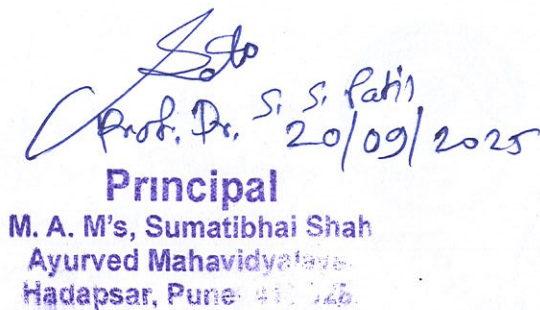 Prof. Dr. S. S. Patil
20/09/2025
Principal
M. A. M's, Sumatibhai Shah
Ayurved Mahavidyalaya
Hadapsar, Pune